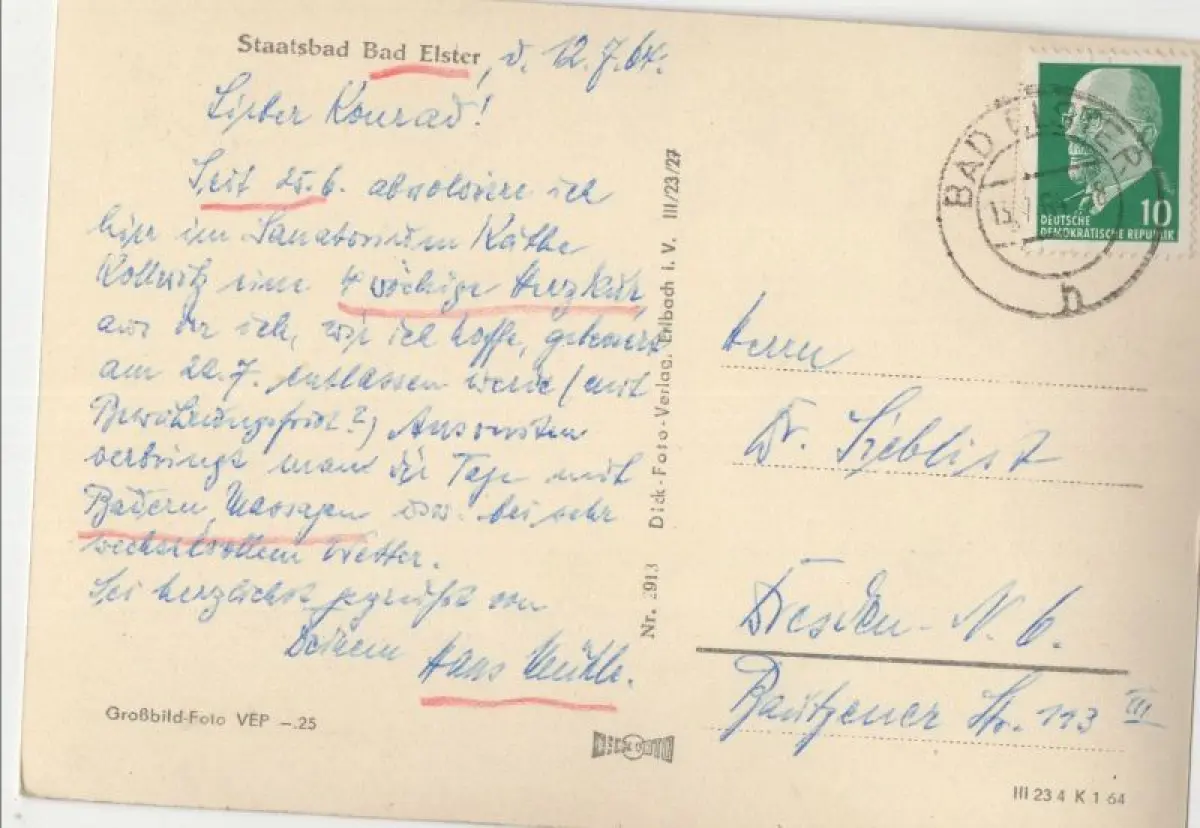 Staatsbad Bad Elster, d. 12.7.64.
Lieber Konrad!
Seit 25.6. absolviere ich
hier im Sanatorium Käthe
Kollwitz eine 4 wöchige Herzkur,
aus der ich, wie ich hoffe, gebessert
am 22.7. entlassen werde (mit
Bewährungsfrist?) Ansonsten
verbringt man die Tage mit
Bädern, Massagen usw. bei sehr
wechselvollem Wetter.
Sei herzlichst gegrüßt von
Deinem Hans
Großbild-Foto VEP -.25
Nr. 2913 Dick-Foto-Verlag, Erlbach i. V. III/23/27
DICK FOTO
BAD ELSTER
h
10
DEUTSCHE
DEMOKRATISCHE REPUBLIK
Herrn
Dr. Sieblist
Dresden-N. 6.
Bautzener Str. 113 III
III 23 4 K 1 64